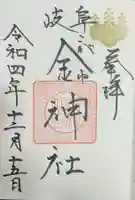 奉拝
岐阜
金神社
令和四年十二月十五日